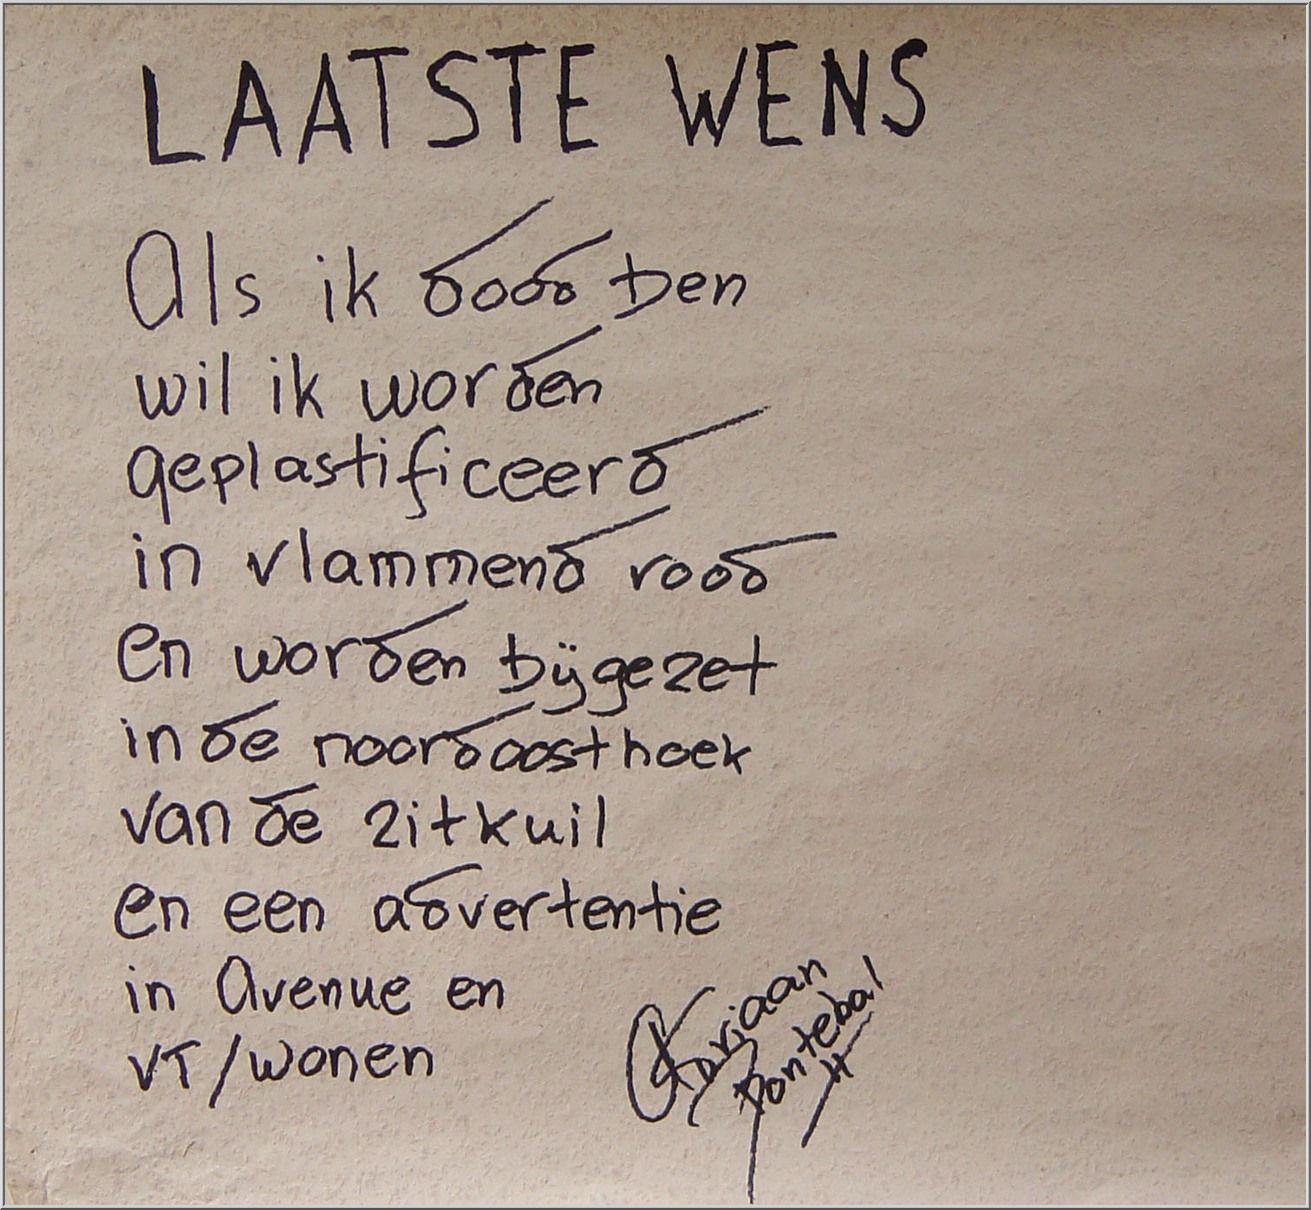 LAATSTE WENS
Als ik dood ben
wil ik worden
geplastificeerd
in vlammend rood
en worden bijgezet
in de noordoosthoek
van de zitkuil
en een advertentie
in Avenue en
VT/wonen